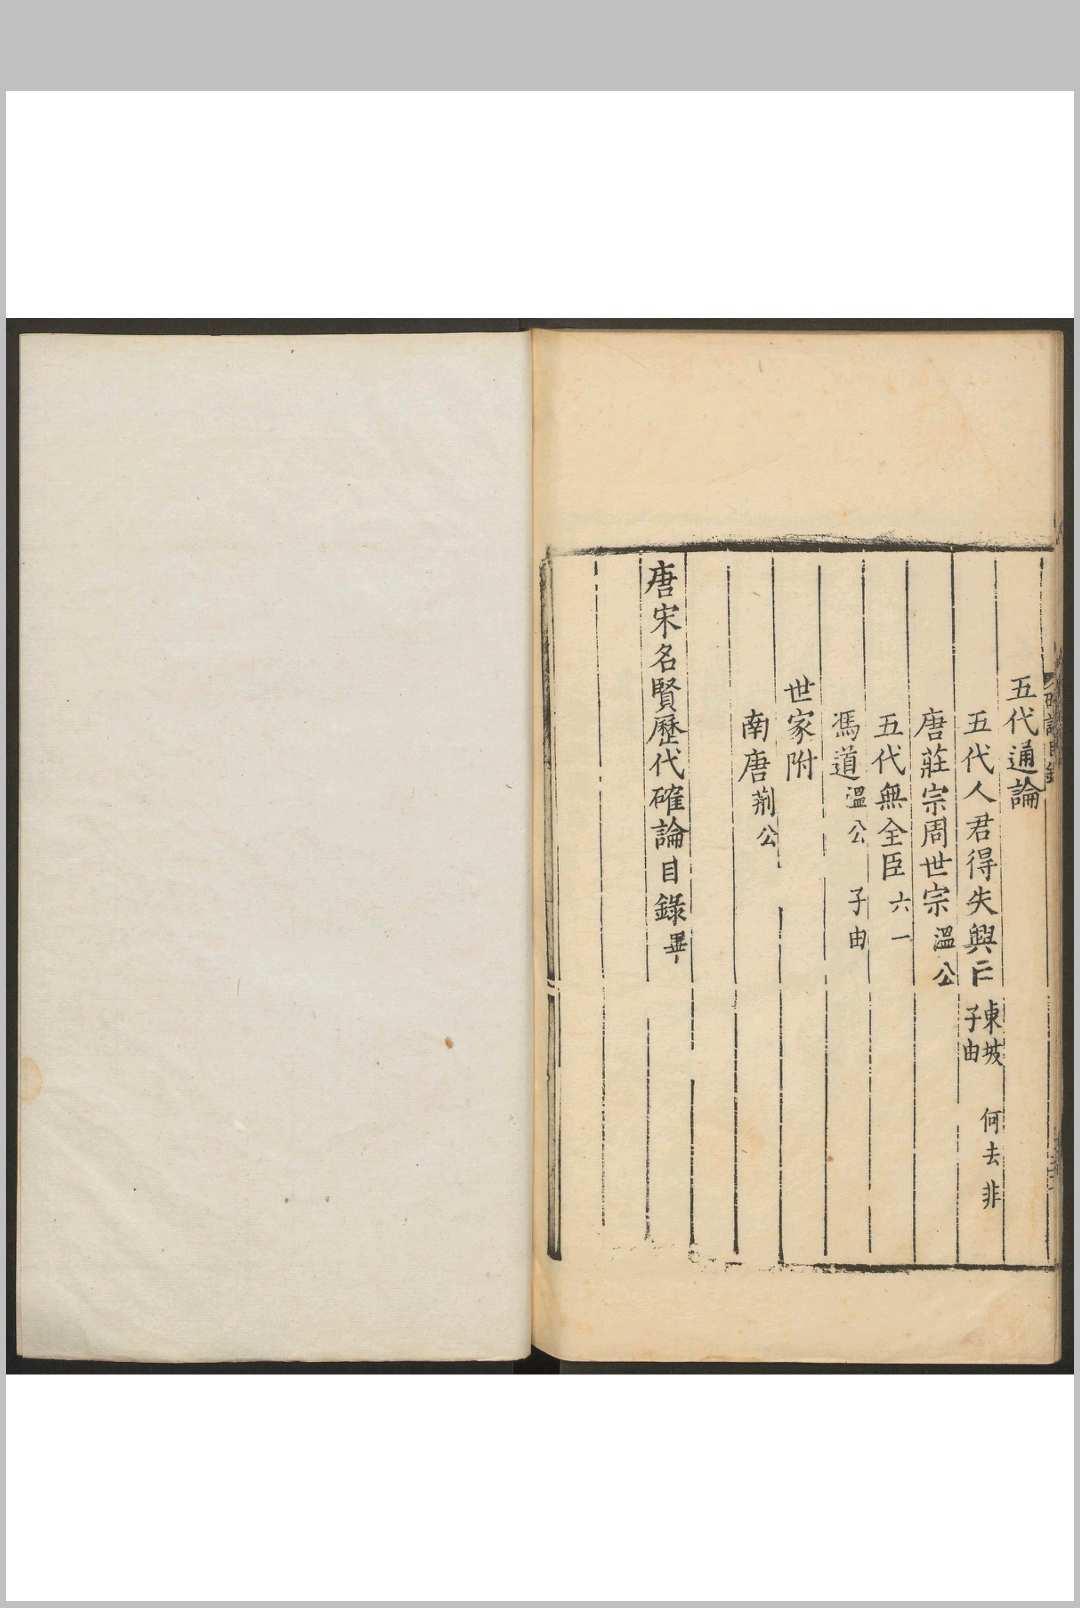 五代通論
五代人君得失興亡 東坡 子由 何去非
唐莊宗周世宗 溫公
五代無全臣 六一
馮道 溫公 子由
世家附
南唐 荆公
唐宋名賢歷代確論目錄畢